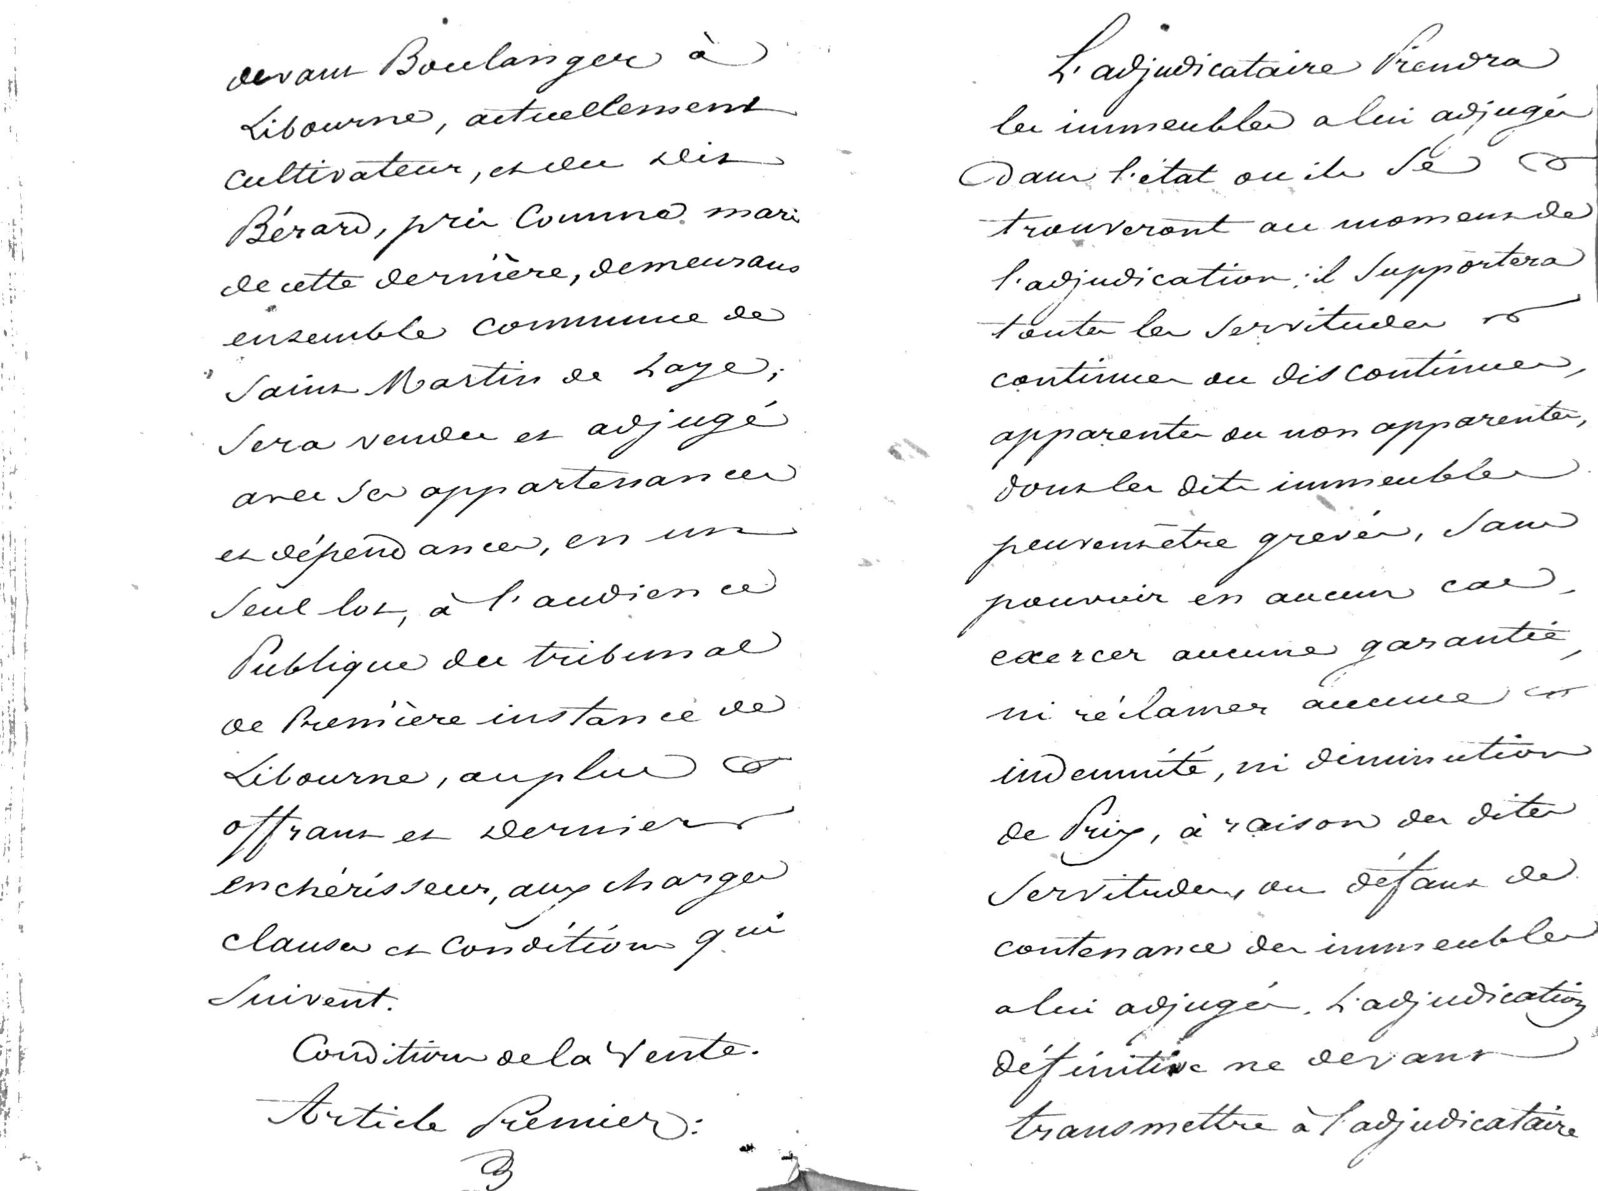 devant Boulanger à
Libourne, actuellement
cultivateur, et du dit
Bérard, pris comme mari
de cette dernière, demeurans
ensemble commune de
Saint Martin de Laye;
Sera vendu et adjugé
avec ses appartenances
et dépendances, en un
Seul lot, à l'audience
Publique du tribunal
de Première instance de
Libourne, au plus
offrant et dernier
enchérisseur, aux charges
clauses et conditions qui
Suivent.
Conditions de la Vente.
Article Premier:
3
L'adjudicataire Prendra
les immeubles a lui adjugés
dans l'état ou ils Se
trouveront au moment de
l'adjudication; il Supportera
toutes les Servitudes
continues ou discontinues,
apparentes ou non apparentes,
dont les dits immeubles
peuvent être grevés, Sans
pouvoir en aucun cas,
exercer aucune garantie,
ni réclamer aucune
indemnité, ni diminution
de Prix, à raison des dites
Servitudes, ou défaut de
contenance des immeubles
a lui adjugés. L'adjudication
définitive ne devant
transmettre à l'adjudicataire